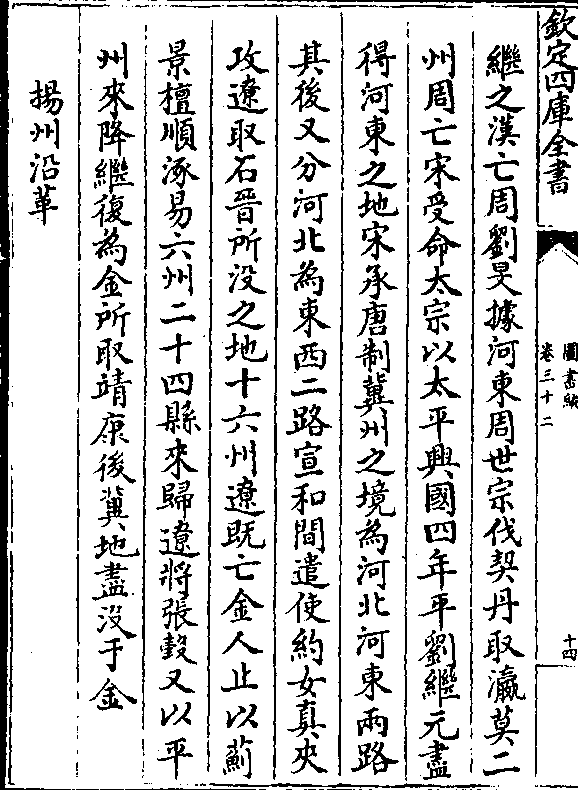 欽定四庫全書
圖書編
卷三十二
十四
繼之漢亡周劉旻據河東周世宗伐契丹取瀛莫二
州周亡宋受命太宗以太平興國四年平劉繼元盡
得河東之地宋承唐制冀州之境為河北河東兩路
其後又分河北為東西二路宣和間遣使約女真夾
攻遼取石晉所没之地十六州遼既亡金人止以薊
景檀順涿易六州二十四縣來歸遼將張瑴又以平
州來降繼復為金所取靖康後冀地盡没于金
揚州沿革